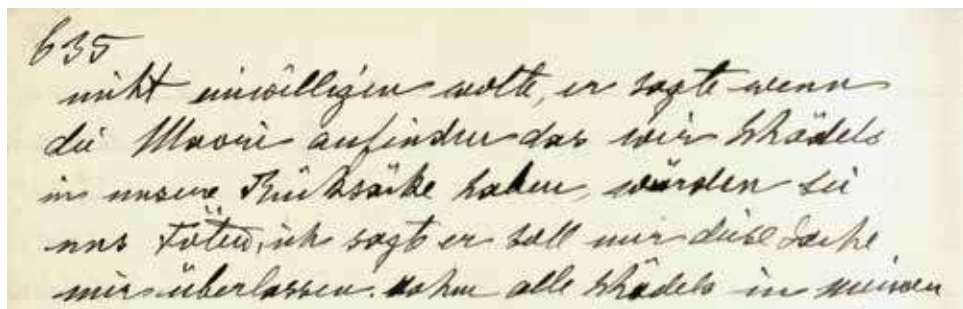 635
nicht einwilligen wolte, er sagte wenn
die Maori aufinden das wir Schädels
in unsere Rucksäcke haben, würden sie
uns Töten, ich sagt er soll nur diese Sache
mir überlassen. nahm alle Schädels in meinen